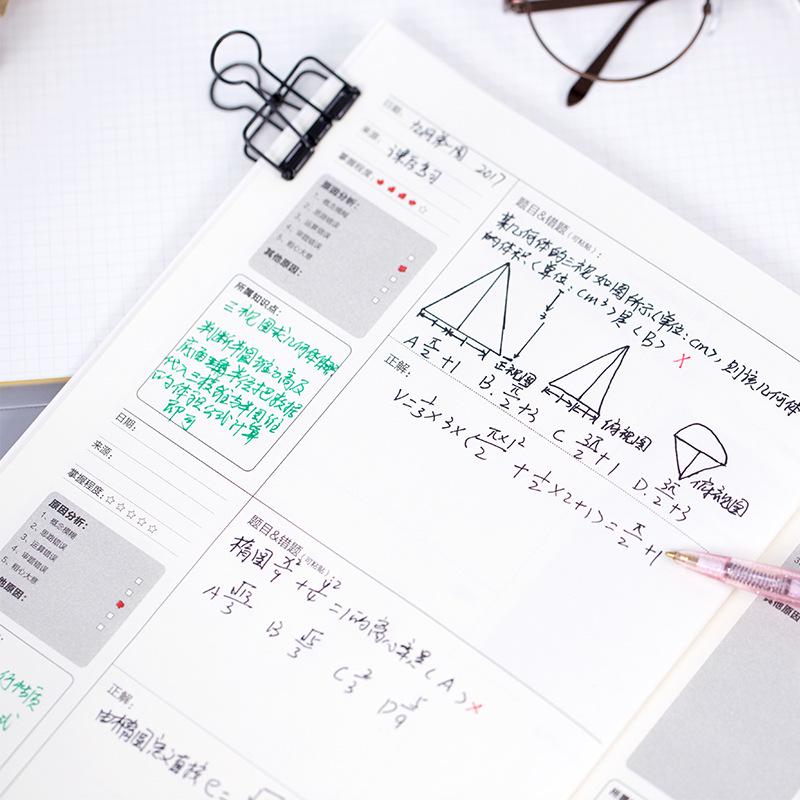 日期: 九月第一周 2017
来源: 课后练习
掌握程度:
原因分析:
1、概念模糊
2、思路错误
3、运算错误
4、审题错误
5、粗心大意
其他原因:
所属知识点:
三视图求几何体体积
判断半圆锥的高及
底面半径把数据
代入三棱锥与半圆锥
的体积公式计算
即可
题目&错题(可粘贴):
某几何体的三视如图所示(单位:cm),则该几何体
的体积(单位:cm³)是(B) ×
3
正视图
俯视图
俯视图
A π/2+1
B. π/2+3
C 3π/2+1
D. 3π/2+3
正解:
V=1/3×3×(π×1²/2+1/2×2×1)=π/2+1
日期:
来源:
掌握程度:
原因分析:
1、概念模糊
2、思路错误
3、运算错误
4、审题错误
5、粗心大意
其他原因:
题目&错题(可粘贴):
椭圆x²/9+y²/4=1的离心率是(A) ×
A √13/3
B √5/3
C 2/3
D 5/9
正解:
由椭圆定义直接e=
其他原因
所属知识点